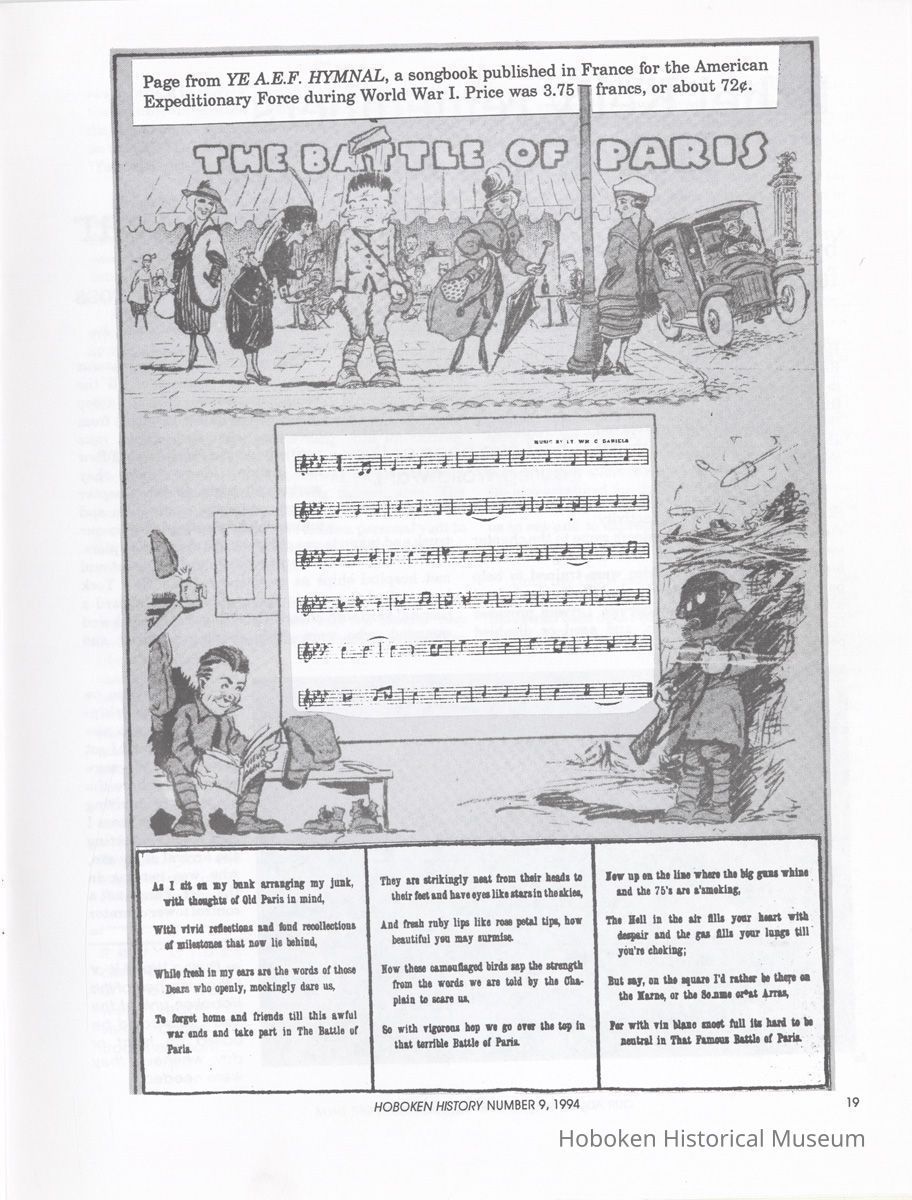 Page from YE A.E.F. HYMNAL, a songbook published in France for the American
Expeditionary Force during World War I. Price was 3.75 francs, or about 72¢.
THE BATTLE OF PARIS
MUSIC BY LT. WM C DANIELS
As I sit on my bunk arranging my junk,
with thoughts of Old Paris in mind,
With vivid reflections and fond recollections
of milestones that now lie behind,
While fresh in my ears are the words of those
Dears who openly, mockingly dare us,
To forget home and friends till this awful
war ends and take part in The Battle of
Paris.
They are strikingly neat from their heads to
their feet and have eyes like stars in the skies,
And fresh ruby lips like rose petal tips, how
beautiful you may surmise.
Now these camouflaged birds sap the strength
from the words we are told by the Cha-
plain to scare us,
So with vigorous hop we go over the top in
that terrible Battle of Paris.
Now up on the line where the big guns whine
and the 75's are a'smoking,
The Hell in the air fills your heart with
despair and the gas fills your lungs till
you're choking;
But say, on the square I'd rather be there on
the Marne, or the Somme or at Arras,
For with vin blanc snoot full its hard to be
neutral in That Famous Battle of Paris.
HOBOKEN HISTORY NUMBER 9, 1994
19
Hoboken Historical Museum